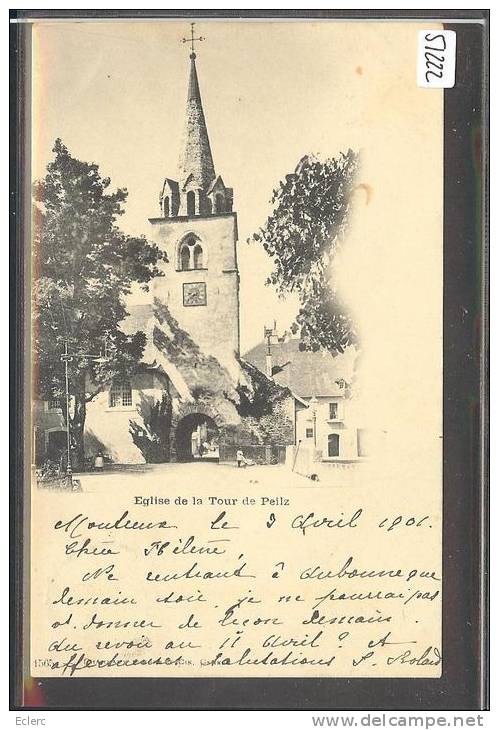 51222
Eglise de la Tour de Peilz
Montreux le 3 Avril 1901.
Chère Hélène,
Ne rentrant à Aubonne que
demain soir, je ne pourrai pas
donner de leçon demain.
Au revoir au 11 Avril? et
affectueuses salutations S. Roland
Eclerc